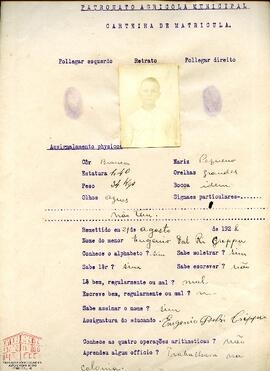 PATRONATO AGRICOLA MUNICIPAL
CARTEIRA DE MATRICULA.
Pollegar esquerdo Retrato Pollegar direito
Assignalamento physico:
Côr Branca Nariz Pequeno
Estatura 1.40 Orelhas grandes
Peso 34 Kgs Bocca idem
Olhos Signaes particulares
não tem.
Remettido em 21 de Agosto de 192
Nome do menor Eugenio Dal Ri
Conhece o alphabeto? sim Sabe soletrar? sim
Sabe lêr? sim Sabe escrever? não
Lê bem, regularmente ou mal? mal.
Escreve bem, regularmente ou mal?
Sabe assinar o nome? sim
Assignatura do educando Eugenio
Conhece as quatro operações arithmeticas? não
Aprendeu algum officio? trabalhava na
colonia.